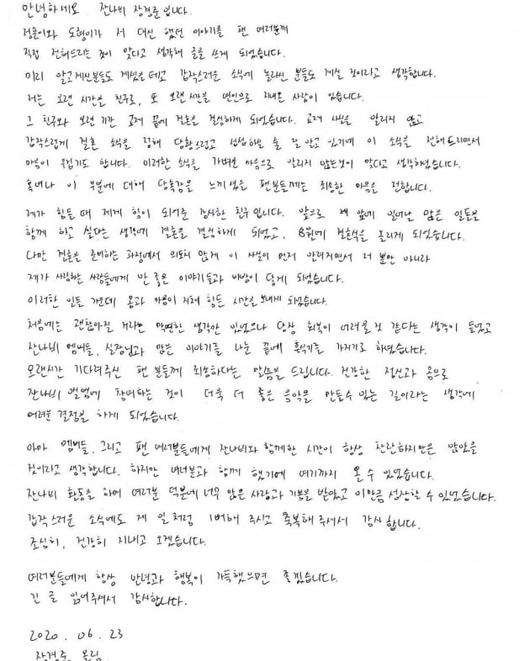 안녕하세요 잔나비 장경준입니다.
정훈이와 도형이가 저 대신 했던 이야기를 팬 여러분께
직접 전해드리는 것이 맞다고 생각해 글을 쓰게 되었습니다.
미리 알고계신분들도 계셨을테고 갑작스러운 소식에 놀라신 분들도 계실 것이라고 생각합니다.
저는 오랜 시간을 친구로, 또 오랜시간을 연인으로 지내온 사람이 있습니다.
그 친구와 오랜 기간 교제 끝에 결혼을 결정하게 되었습니다. 교제 사실을 알리지 않고
갑작스럽게 결혼 소식을 전해 당황스럽고 상심하셨을 줄 잘 알고 있기에 이 소식을 전해드리면서
마음이 무겁기도 합니다. 이러한 소식을 가벼운 마음으로 알리지 않는것이 맞다고 생각하였습니다.
혹여나 이 부분에 대해 당혹감을 느끼셨을 팬분들께는 죄송한 마음을 전합니다.
제가 힘들 때 제게 힘이 되어준 감사한 친구입니다. 앞으로 제 앞에 일어날 많은 일들을
함께 하고 싶다는 생각에 결혼을 결심하게 되었고, 8월에 결혼식을 올리게 되었습니다.
다만 결혼을 준비하는 과정에서 의도치 않게 이 사실이 먼저 알려지면서 저 뿐만 아니라
제가 사랑하는 사람들에게 안 좋은 이야기들과 비방이 닿게 되었습니다.
이러한 일들 가운데 몸과 마음이 지쳐 힘든 시간을 보내게 되었습니다.
처음에는 괜찮아질 거라는 막연한 생각만 있었으나 당장 회복이 어려울 것 같다는 생각이 들었고
잔나비 멤버들, 실장님과 많은 이야기를 나눈 끝에 휴식기를 가지기로 하였습니다.
오랜시간 기다려주신 팬 분들께 죄송하다는 말씀을 드립니다. 건강한 정신과 몸으로
잔나비 앨범에 참여하는 것이 더욱 더 좋은 음악을 만들수 있는 길이라는 생각에
어려운 결정을 하게 되었습니다.
아마 멤버들, 그리고 팬 여러분들에게 잔나비와 함께한 시간이 항상 찬란하지만은 않았을
것이라고 생각합니다. 하지만 여러분과 함께 했기에 여기까지 올 수 있었습니다.
잔나비 활동을 하며 여러분 덕분에 너무 많은 사랑과 기쁨을 받았고 이만큼 성장할 수 있었습니다.
갑작스러운 소식에도 제 일처럼 위해 주시고 축복해 주셔서 감사합니다.
조심히, 건강히 지내고 오겠습니다.
여러분들에게 항상 안녕과 행복이 가득했으면 좋겠습니다.
긴 글 읽어주셔서 감사합니다.
2020. 06. 23
장경준 올림